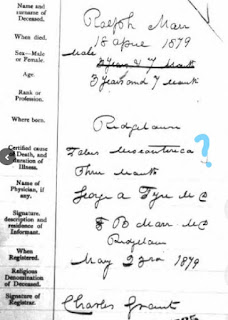 Name and
surname of
Deceased.
Ralph Marr
When died.
18 April 1879
Sex—Male
or Female.
Male
Age.
3 years & 7 Month
3 years and 7 Month
Rank or
Profession.
Where born.
Ridgelawn
Certified cause
of Death, and
Duration of
Illness.
Tabes Mesenterica ?
Three Month
Name of
Physician, if
any.
George A Tyre MD
Signature,
description and
residence of
Informant.
Marr MD
Ridgelawn
When
Registered.
May 23rd 1879
Religious
Denomination
of Deceased.
Signature of
Registrar.
Charles Grant